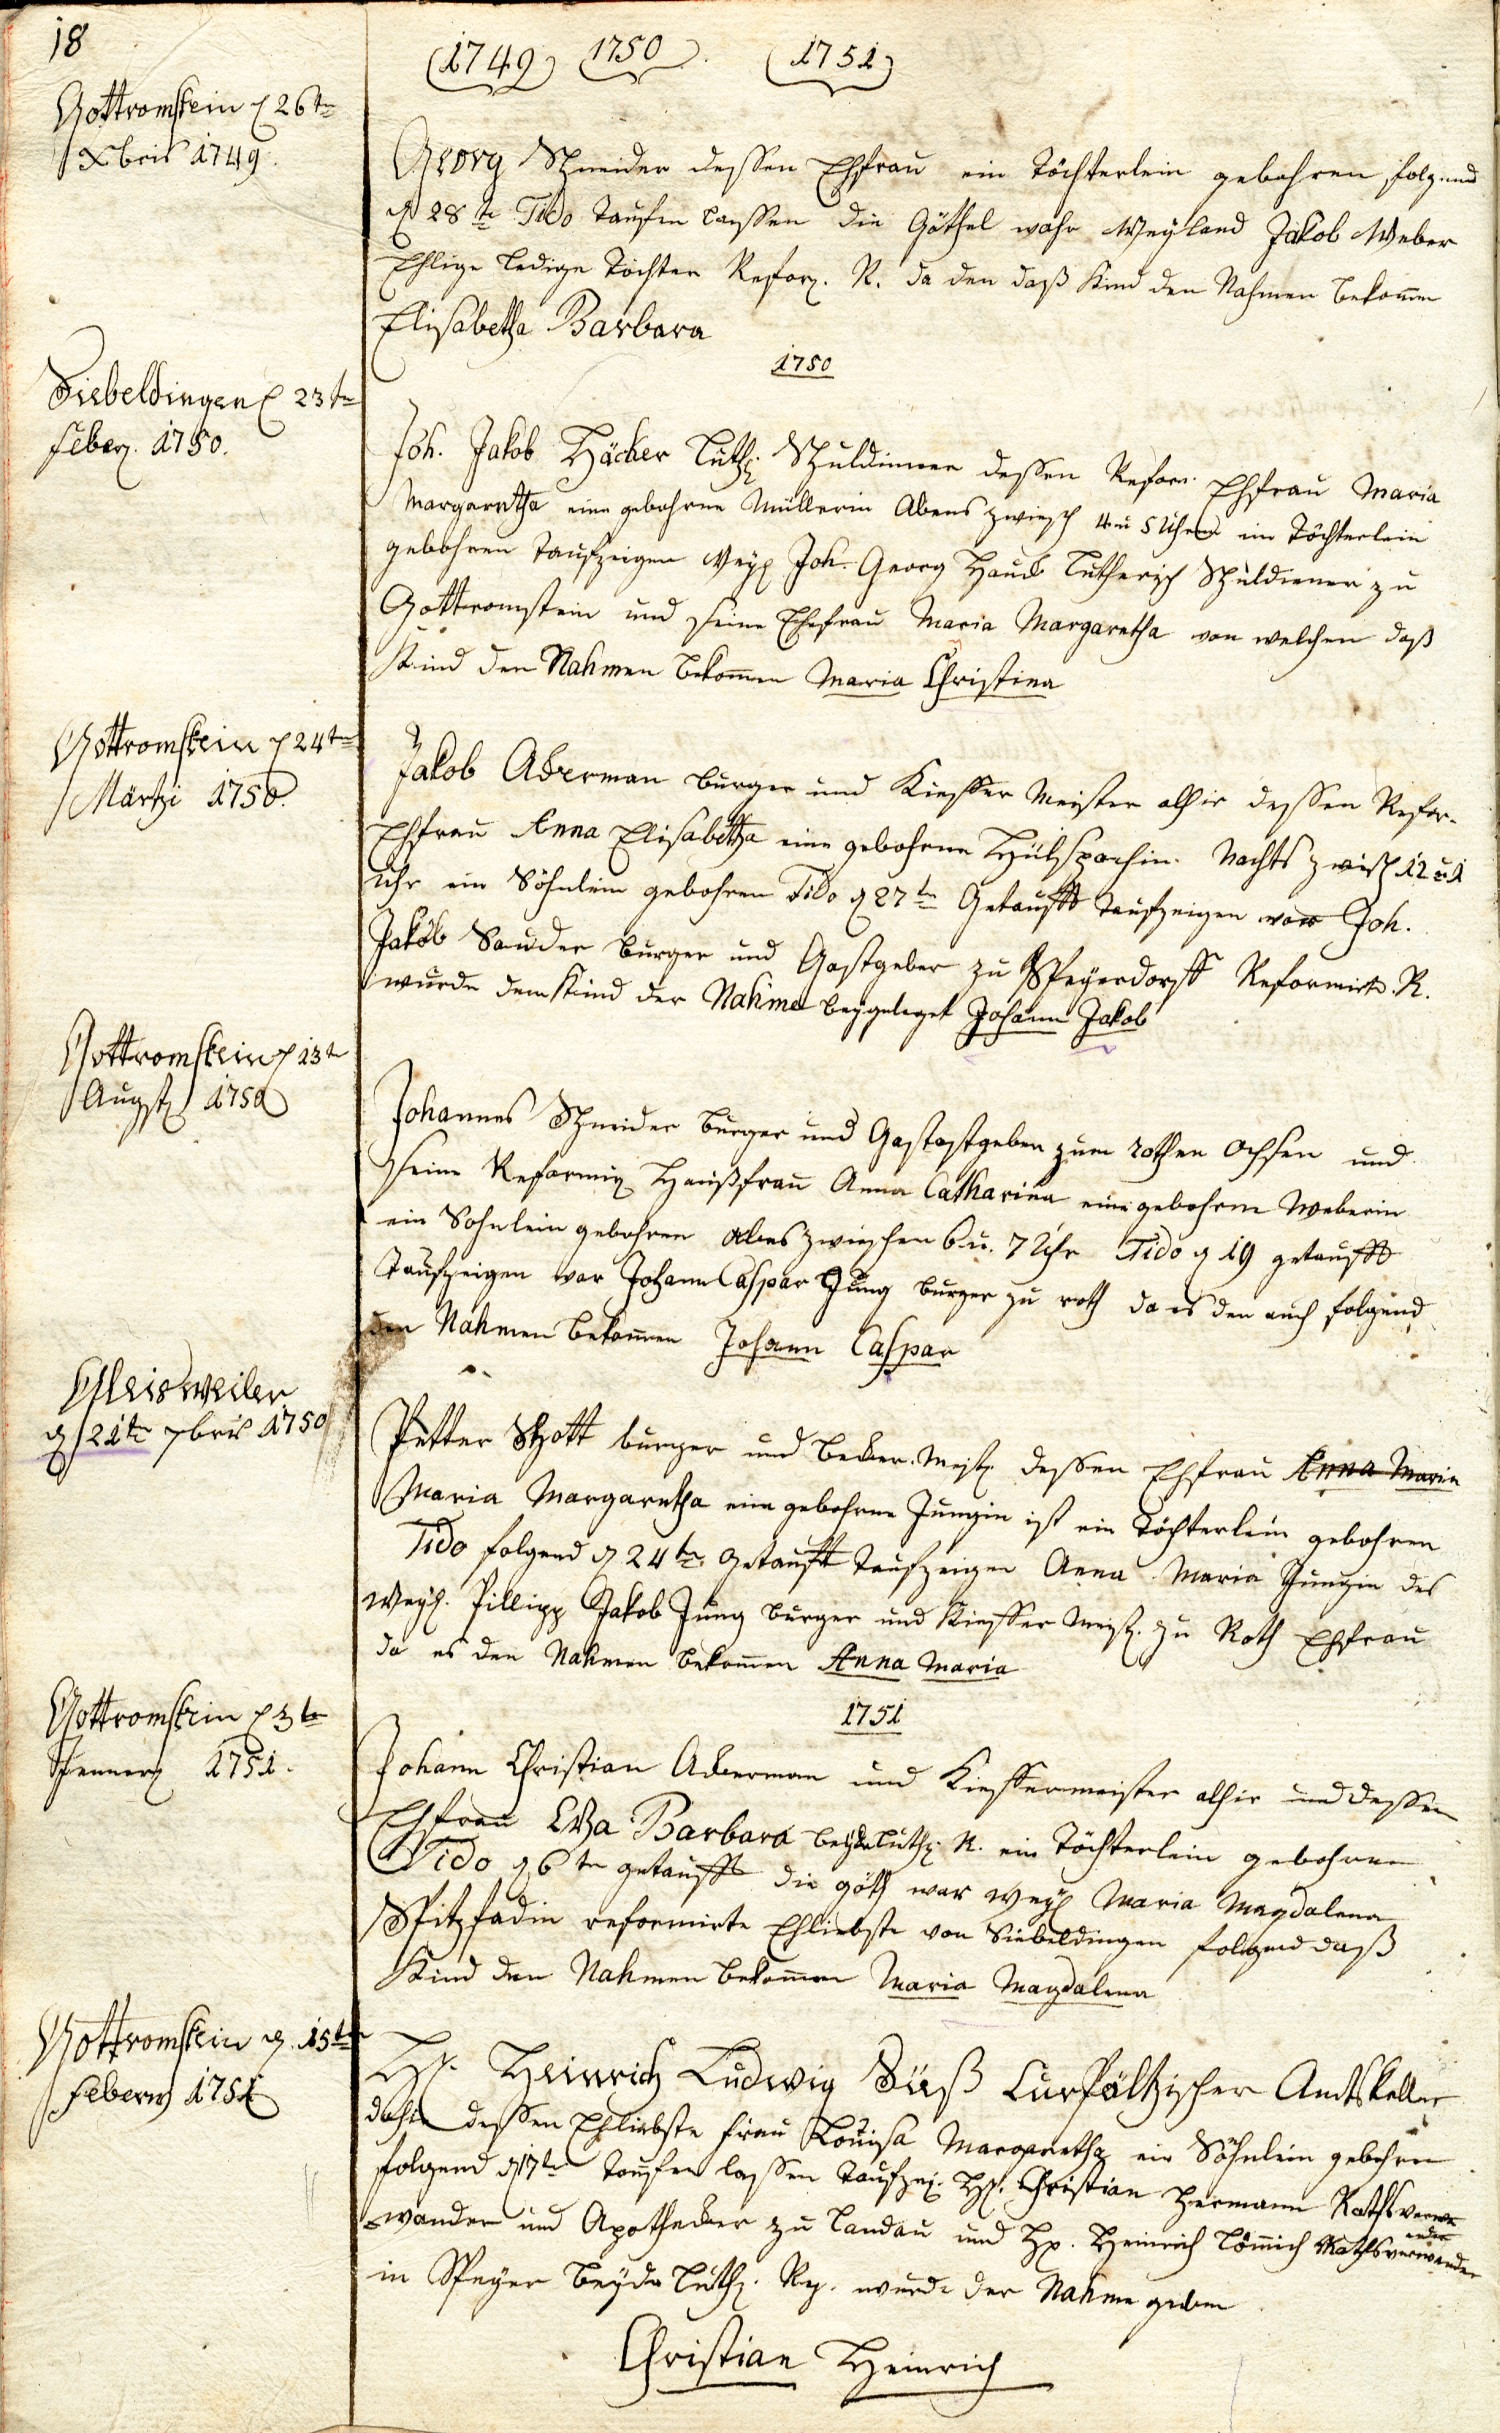 18
1749 1750 1751
Gottramstein d 26ten
Xbris 1749.
Georg Schneider dessen Ehfrau ein Töchterlein gebohren folgend
d 28te Tido Taufen lassen die Göthel wahr Weyland Jakob Weber
Ehlige ledige Tochter Refor. R. da den daß Kind den Nahmen bekomen
Elisabetha Barbara
1750
Siebeldingen d 23ten
Feber. 1750.
Joh. Jakob Häcker Luth. Schuldinner dessen Refor. Ehfrau Maria
Margaretha eine gebohrne Müllerin Abens zwisch 4 u 5 Uhren ein Töchterlein
gebohren Taufzeigen Joh. Georg Hauck Lutherisch Schuldiener zu
Gottromstein und seine Ehefrau Maria Margaretha von welchen daß
Kind den Nahmen bekomen Maria Christina
Gottromstein d 24ten
Märtzi 1750.
Jakob Ackerman burger und Kieffer Meister alhir dessen Refor.
Ehfrau Anna Elisabetha eine gebohrne Nachts zwisch 12 u 1
Uhr ein Söhnlein gebohren Tido d 27ten Getaufft Taufzeigen war Joh.
Jakob Sauder burger und Gastgeber zu Speyerdorff Reformirt. R.
wurde dem Kind der Nahme beygeleget Johann Jakob
Gottromstein d 13te
Augst 1750
Johannes Schneider burger und Gastastgeber zum rothen Ochsen und
seine Reformir Haußfrau Anna Catharina eine gebohrne Weberin
ein Sohnlein gebohren abens zwischen 6 u. 7 Uhr Tido d 19 getaufft
Taufzeigen war Johann Caspar Jung burger zu roth da es den auch folgend
den Nahmen bekomen Johann Caspar
Gleisweiler
d 21te 7bris 1750
Petter Schott burger und becker Meist. dessen Ehfrau Anna Maria
Maria Margaretha eine gebohrne Jungin ist ein Töchterlein gebohren
Tido folgend d 24te getauft Taufzeigen Anna Maria Jungin des
Weyl. Pillipp Jakob Jung burger und Kieffer Meist. zu Roth Ehfrau
da es den Nahmen bekomen Anna Maria
1751
Gottromstein d 3te
Jenner 1751.
Johann Christian Ackerman und Kieffermeister alhir und dessen
Ehfrau Eva Barbara beyde Luth. R. ein Töchterlein gebohren
Tido d 6ten getaufft die göth war Weyl Maria Magdalena
Spitzfadin reformirte Ehliebste von Siebeldingen folgend daß
Kind den Nahmen bekomen Maria Magdalena
Gottromstein d. 15ten
Febery 1751
H. Heinrich Ludwig Süß Curpfältzischer Amtskeller
dahir dessen Ehliebste frau Louisa Margaretha ein Söhnlein gebohren
folgend d 17te Taufen lassen Taufzei. H. Christian Hermann Rathsverw
wander und Apothecker zu Landau und H. Heinrich Rathsverwander
in Speyer beyde Luth. Re. wurde der Nahme geben
Christian Heinrich